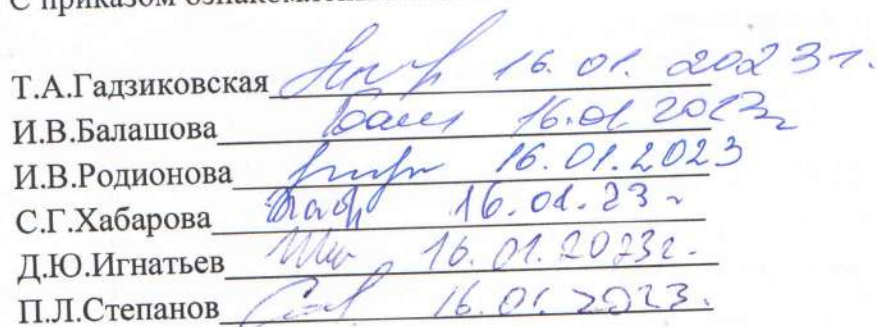 С приказом ознакомлены
Т.А.Гадзиковская 16.01.2023г.
И.В.Балашова 16.01.2023г
И.В.Родионова 16.01.2023
С.Г.Хабарова 16.01.23г
Д.Ю.Игнатьев 16.01.2023г.
П.Л.Степанов 16.01.2023.